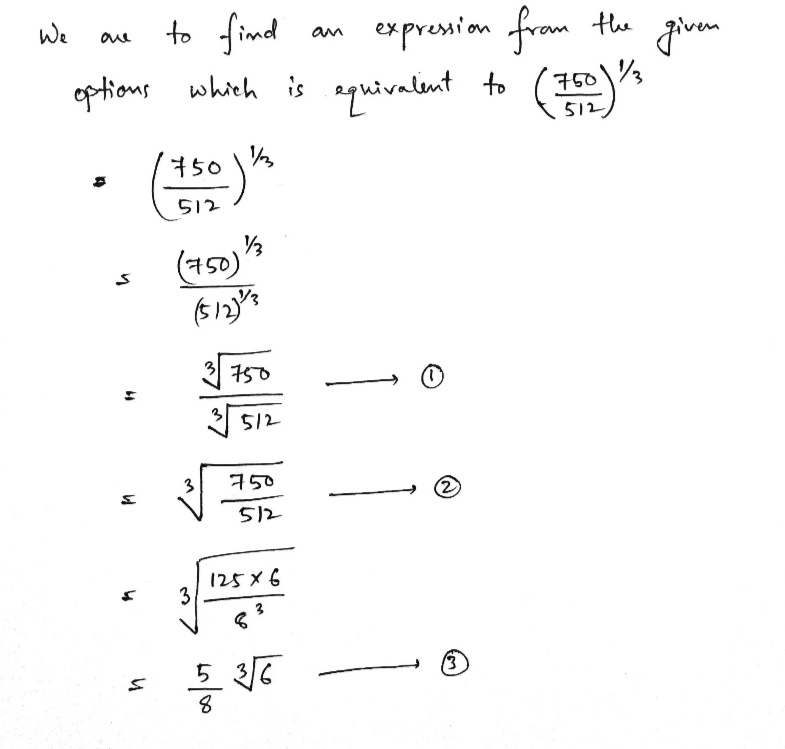 We are to find an expression from the given
options which is equivalent to (750/512)^1/3
= (750/512)^1/3
= (750)^1/3 / (512)^1/3
= ∛750 / ∛512 → ①
= ∛(750/512) → ②
= ∛(125 × 6 / 8³)
= 5/8 ∛6 → ③